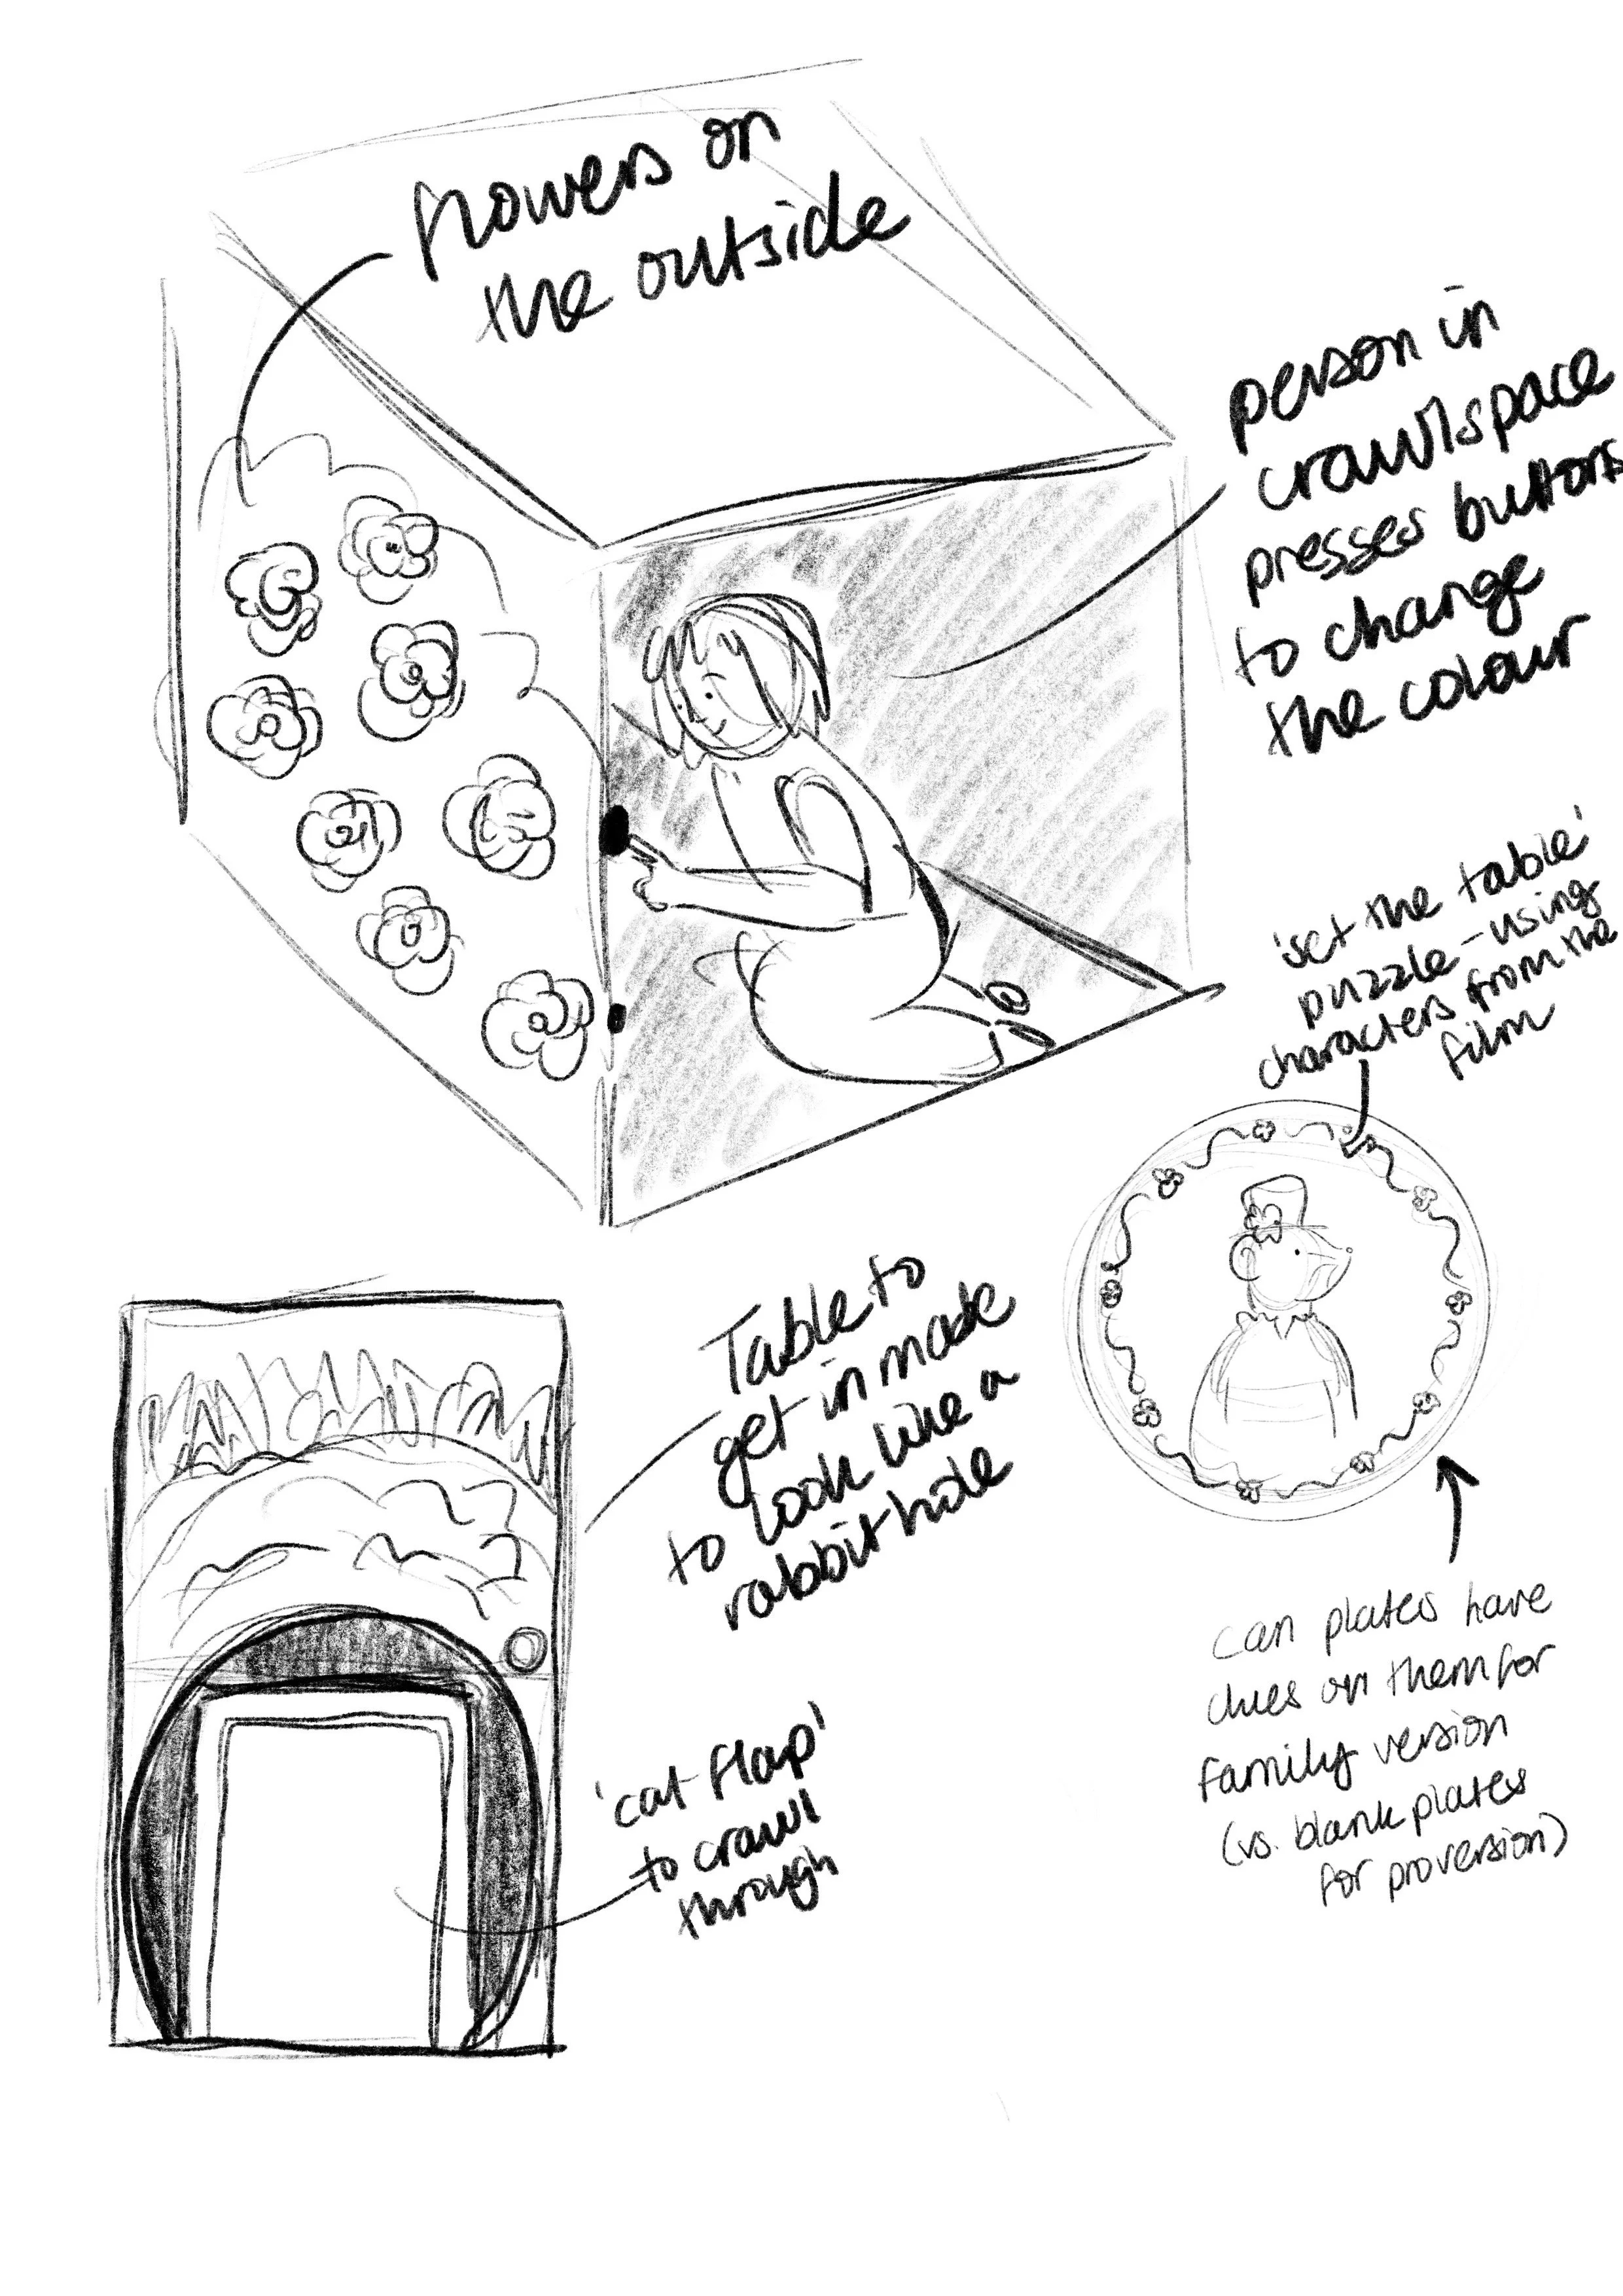 flowers on
the outside
person in
crawlspace
presses buttons
to change
the colour
'set the table'
puzzle - using
characters from the
film
Table to
get in made
to look like a
rabbit hole
'cat flap'
to crawl
through
can plates have
clues on them for
family version
(vs. blank plates
for pro version)